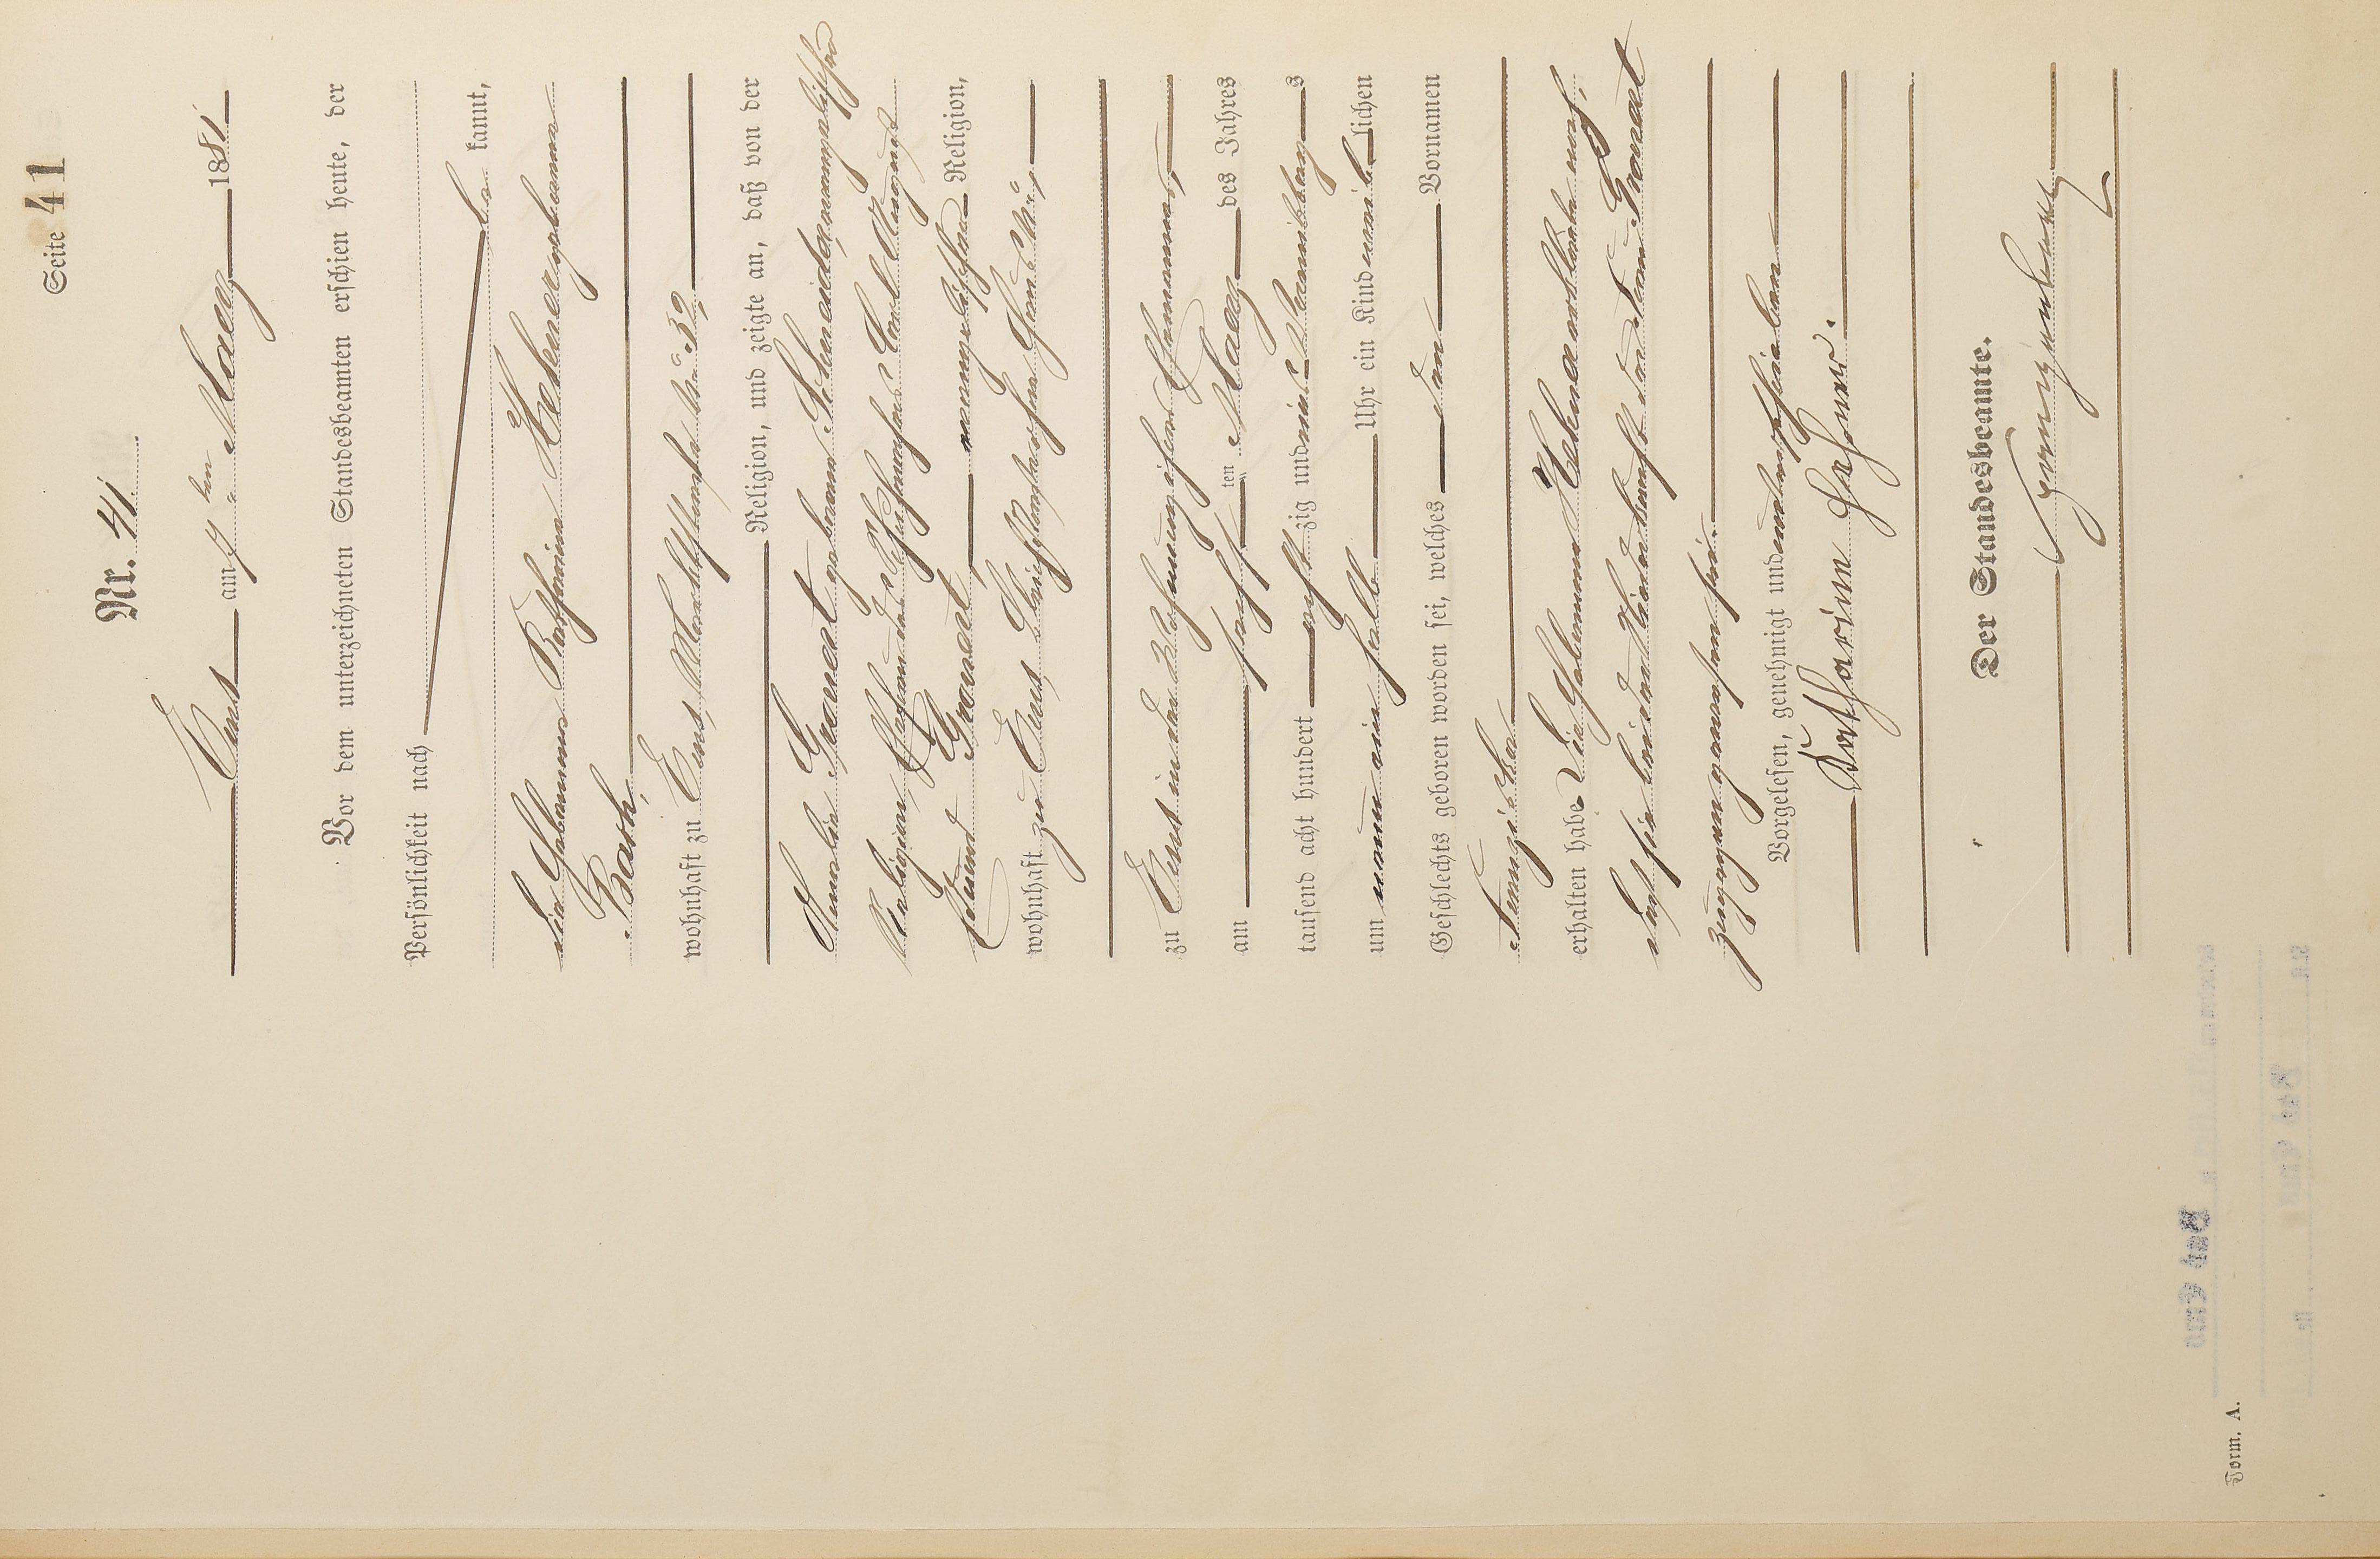 Seite 41
Nr. 41.
Ems am 7ten Maerz 1881
Vor dem unterzeichneten Standesbeamten erschien heute, der
Persönlichkeit nach
be kannt,
die Hebamme Katharina Hehner, geborene
Bach,
wohnhaft zu Ems, No. 32,
Religion, und zeigte an, daß von der
Amalie Grandt geborene Schneider, evangelischer
Religion, Ehefrau des Carl August
Eduard Grandt, evangelischer Religion,
wohnhaft zu Ems,
zu Ems in der Wohnung ihres Ehemannes,
am sechsten Maerz des Jahres
tausend acht hundert acht zig und eins Vormittags
um neun ein halb Uhr ein Kind weiblichen
Geschlechts geboren worden sei, welches den Vornamen
erhalten habe. Die Hebamme Hehner erklärte noch,
daß sie bei der Niederkunft der Frau Grandt
zugegen gewesen sei.
Vorgelesen, genehmigt und unterschrieben
Katharina Hehner.
Der Standesbeamte.
Form. A.